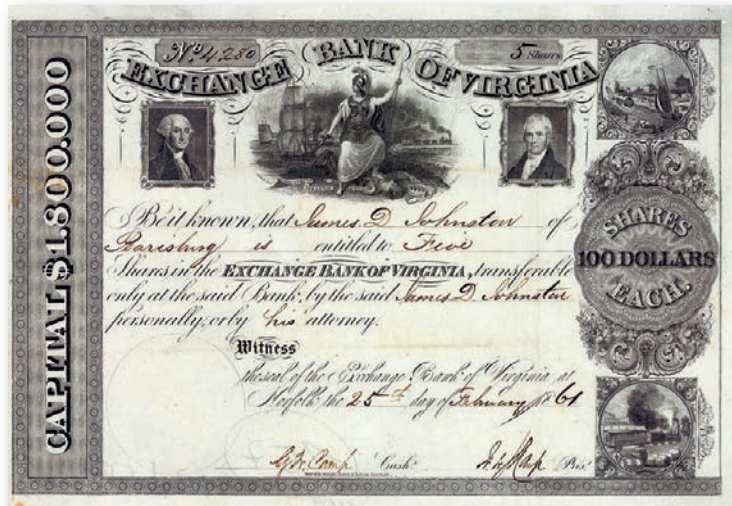 No. 4280
5 Shares
EXCHANGE BANK OF VIRGINIA
CAPITAL $1.800.000
Be it known, that James D Johnston of
Pearisburg is entitled to Five
Shares in the EXCHANGE BANK OF VIRGINIA, transferable
only at the said Bank, by the said James D Johnston
personally, or by his attorney.
SHARES
100 DOLLARS
EACH.
Witness
the seal of the Exchange Bank of Virginia at
Norfolk the 25th day of February 1861
Camp Cash.
Pres.